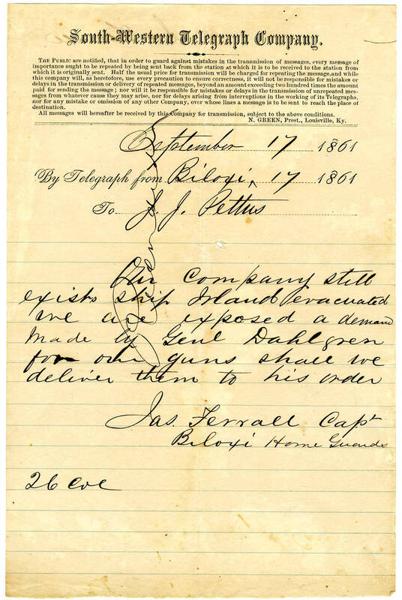 South-Western Telegraph Company.
THE PUBLIC are notified, that in order to guard against mistakes in the transmission of messages, every message of
importance ought to be repeated by being sent back from the station at which it is to be received to the station from
which it is originally sent. Half the usual price for transmission will be charged for repeating the message, and while
this company will, as heretofore, use every precaution to ensure correctness, it will not be responsible for mistakes or
delays in the transmission or delivery of repeated messages, beyond an amount exceeding two hundred times the amount
paid for sending the message; nor will it be responsible for mistakes or delays in the transmission of unrepeated mes-
sages from whatever cause they may arise, nor for delays arising from interruptions in the working of its Telegraphs,
nor for any mistake or omission of any other Company, over whose lines a message is to be sent to reach the place of
destination.
All messages will hereafter be received by this company for transmission, subject to the above conditions.
N. GREEN, Prest., Louisville, Ky.
September 17 1861
By Telegraph from Biloxi, 17 1861
To J. J. Pettus
Our company still
exists ship Island evacuated
we are exposed a demand
made by Genl Dahlgren
for our guns shall we
deliver them to his order
Jas. Ferrall Capt
Biloxi Home Guards
26 col